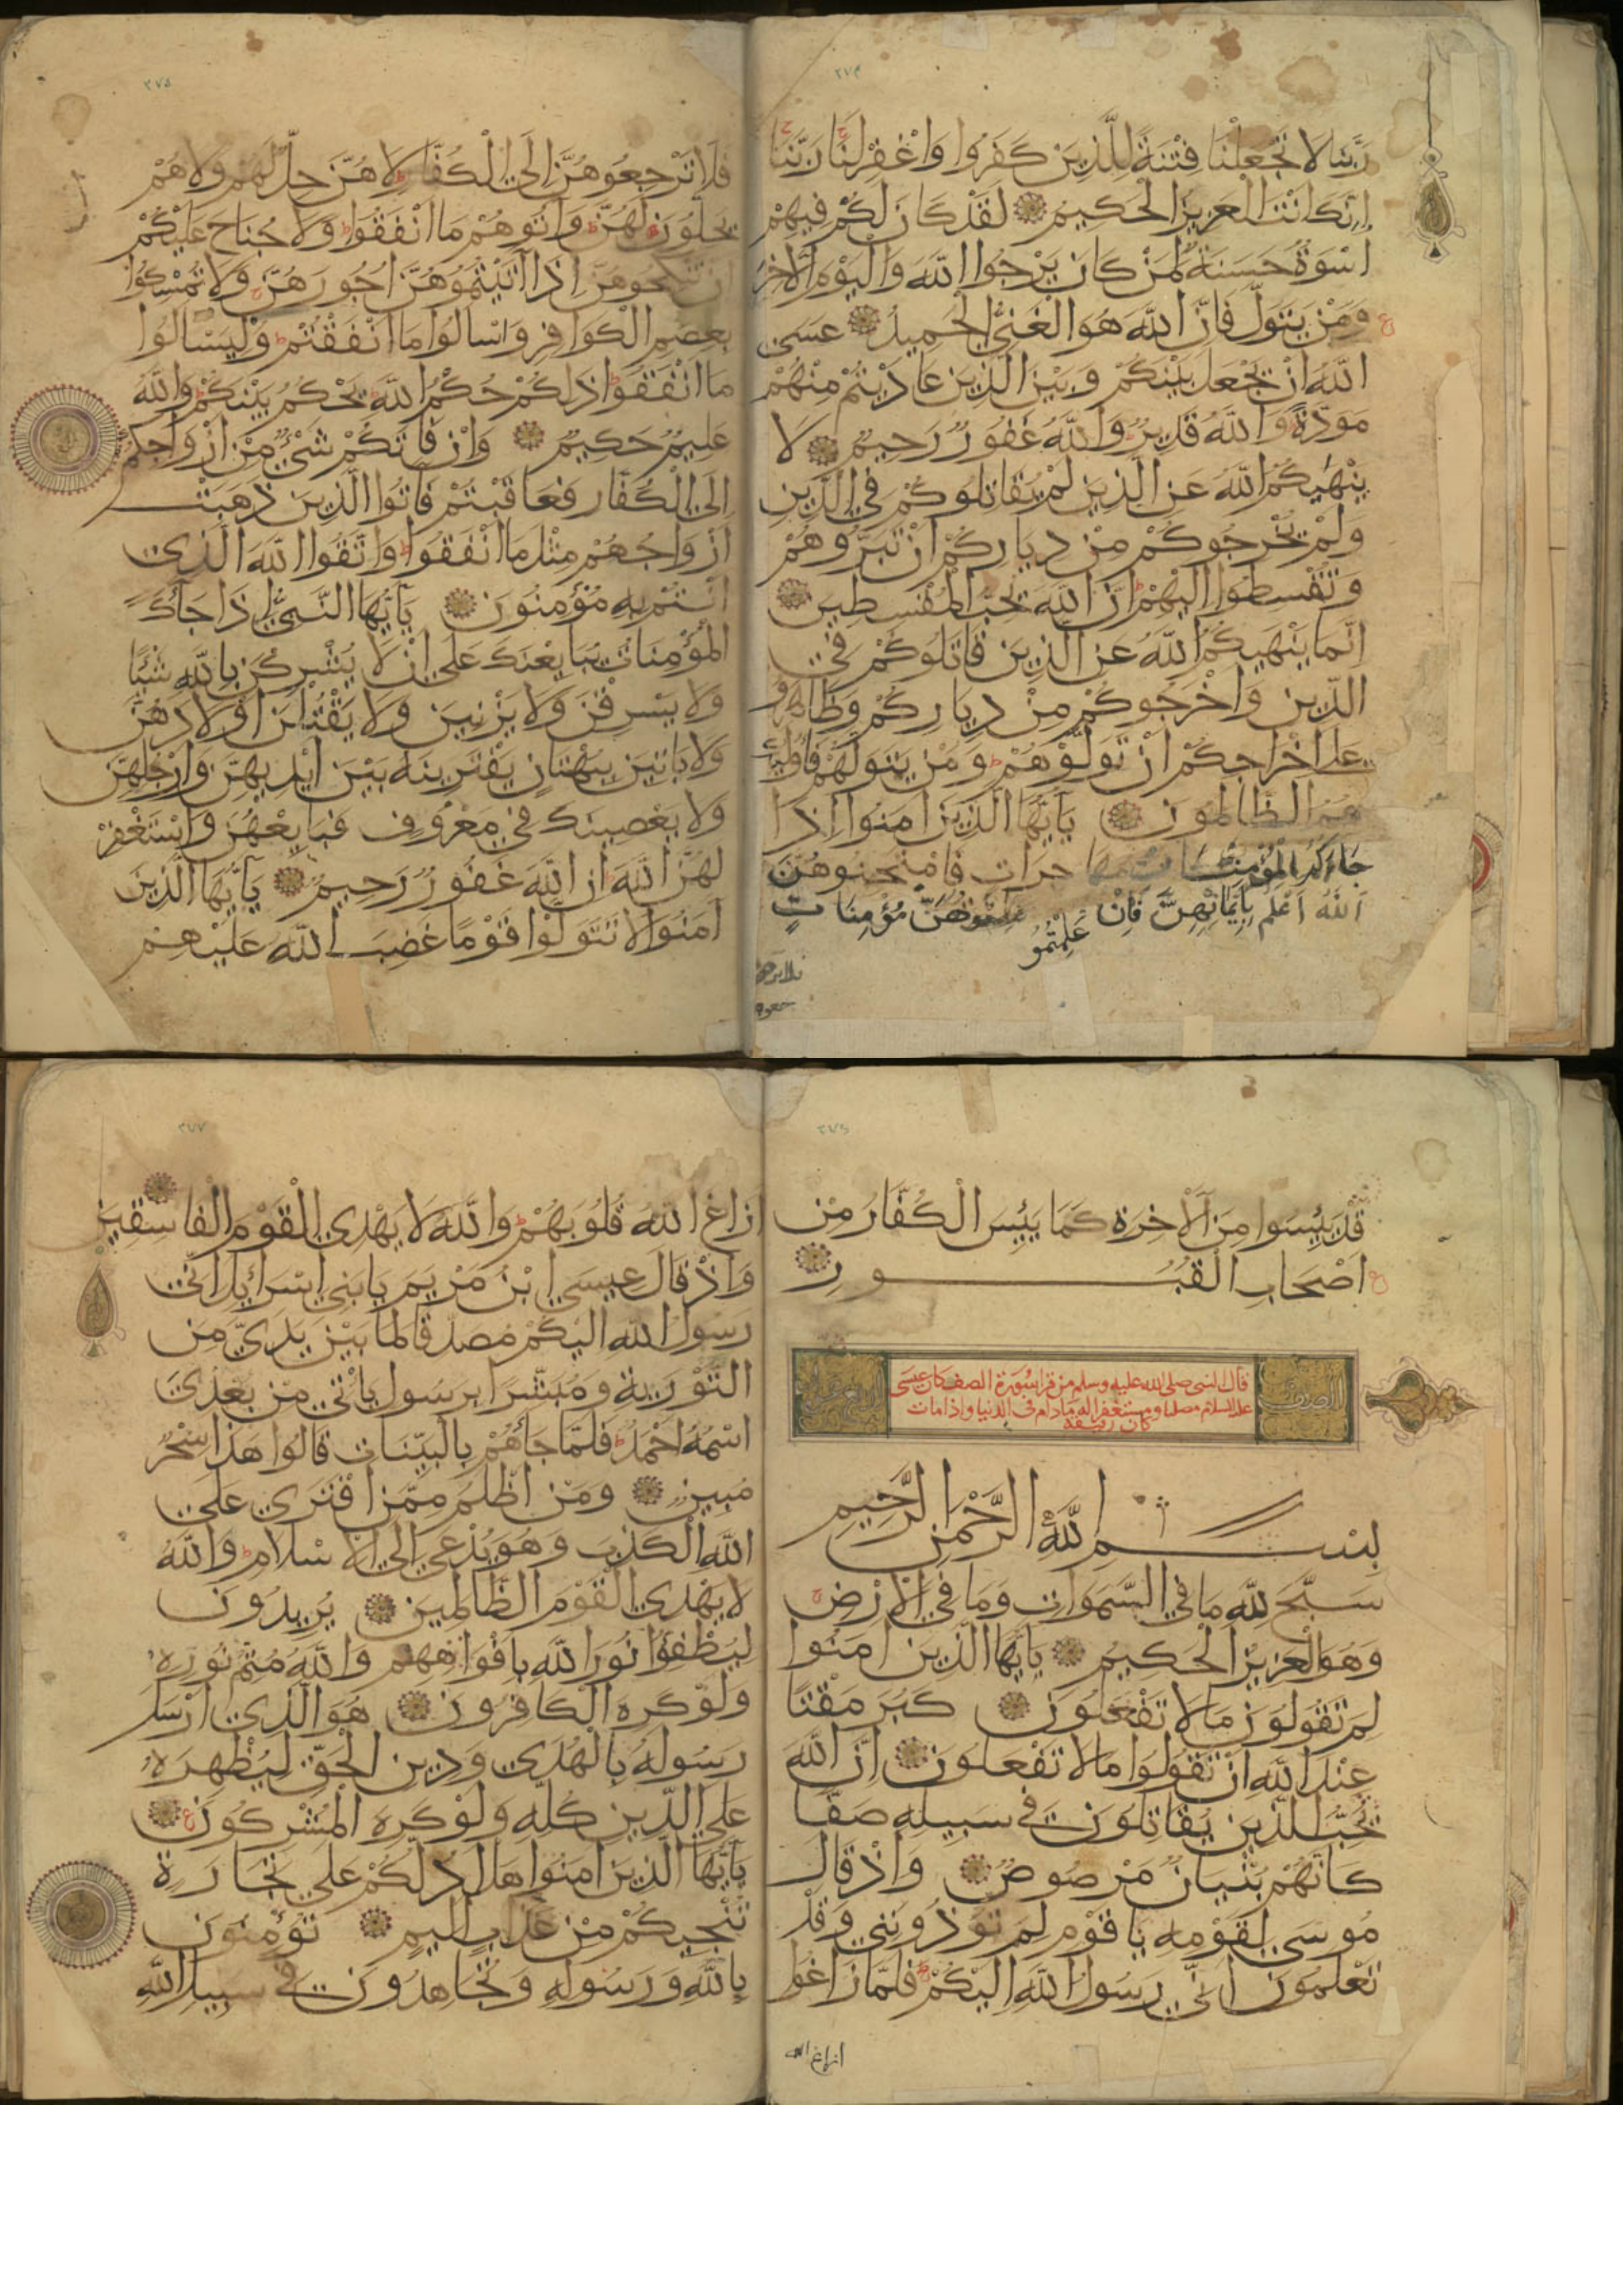 ٢٧٤
رَبَّنَا لَا تَجْعَلْنَا فِتْنَةً لِلَّذِينَ كَفَرُوا وَاغْفِرْ لَنَا رَبَّنَا
اِنَّكَ اَنْتَ الْعَزِيزُ الْحَكِيمُ لَقَدْ كَانَ لَكُمْ فِيهِمْ
اُسْوَةٌ حَسَنَةٌ لِمَنْ كَانَ يَرْجُوا اللَّهَ وَالْيَوْمَ الْآخِرَ
وَمَنْ يَتَوَلَّ فَاِنَّ اللَّهَ هُوَ الْغَنِيُّ الْحَمِيدُ عَسَى
اللَّهُ اَنْ يَجْعَلَ بَيْنَكُمْ وَبَيْنَ الَّذِينَ عَادَيْتُمْ مِنْهُمْ
مَوَدَّةً وَاللَّهُ قَدِيرٌ وَاللَّهُ غَفُورٌ رَحِيمٌ لَا
يَنْهَيكُمُ اللَّهُ عَنِ الَّذِينَ لَمْ يُقَاتِلُوكُمْ فِي الدِّينِ
وَلَمْ يُخْرِجُوكُمْ مِنْ دِيَارِكُمْ اَنْ تَبَرُّوهُمْ
وَتُقْسِطُوا اِلَيْهِمْ اِنَّ اللَّهَ يُحِبُّ الْمُقْسِطِينَ
اِنَّمَا يَنْهَيكُمُ اللَّهُ عَنِ الَّذِينَ قَاتَلُوكُمْ فِي
الدِّينِ وَاَخْرَجُوكُمْ مِنْ دِيَارِكُمْ وَظَاهَرُوا
عَلَى اِخْرَاجِكُمْ اَنْ تَوَلَّوْهُمْ وَمَنْ يَتَوَلَّهُمْ فَاُولَئِكَ
هُمُ الظَّالِمُونَ يَا اَيُّهَا الَّذِينَ اٰمَنُوا اِذَا
جَاءَكُمُ الْمُؤْمِنَاتُ مُهَاجِرَاتٍ فَامْتَحِنُوهُنَّ
اَللَّهُ اَعْلَمُ بِاِيمَانِهِنَّ فَاِنْ عَلِمْتُمُوهُنَّ مُؤْمِنَاتٍ
فلا ترجعوه
٢٧٥
فَلَا تَرْجِعُوهُنَّ اِلَى الْكُفَّارِ لَا هُنَّ حِلٌّ لَهُمْ وَلَا هُمْ
يَحِلُّونَ لَهُنَّ وَاٰتُوهُمْ مَا اَنْفَقُوا وَلَا جُنَاحَ عَلَيْكُمْ
اَنْ تَنْكِحُوهُنَّ اِذَا اٰتَيْتُمُوهُنَّ اُجُورَهُنَّ وَلَا تُمْسِكُوا
بِعِصَمِ الْكَوَافِرِ وَاسْاَلُوا مَا اَنْفَقْتُمْ وَلْيَسْاَلُوا
مَا اَنْفَقُوا ذَلِكُمْ حُكْمُ اللَّهِ يَحْكُمُ بَيْنَكُمْ وَاللَّهُ
عَلِيمٌ حَكِيمٌ وَاِنْ فَاتَكُمْ شَيْءٌ مِنْ اَزْوَاجِكُمْ
اِلَى الْكُفَّارِ فَعَاقَبْتُمْ فَاٰتُوا الَّذِينَ ذَهَبَتْ
اَزْوَاجُهُمْ مِثْلَ مَا اَنْفَقُوا وَاتَّقُوا اللَّهَ الَّذِي
اَنْتُمْ بِهِ مُؤْمِنُونَ يَا اَيُّهَا النَّبِيُّ اِذَا جَاءَكَ
الْمُؤْمِنَاتُ يُبَايِعْنَكَ عَلَى اَنْ لَا يُشْرِكْنَ بِاللَّهِ شَيْئًا
وَلَا يَسْرِقْنَ وَلَا يَزْنِينَ وَلَا يَقْتُلْنَ اَوْلَادَهُنَّ
وَلَا يَاْتِينَ بِبُهْتَانٍ يَفْتَرِينَهُ بَيْنَ اَيْدِيهِنَّ وَاَرْجُلِهِنَّ
وَلَا يَعْصِينَكَ فِي مَعْرُوفٍ فَبَايِعْهُنَّ وَاسْتَغْفِرْ
لَهُنَّ اللَّهَ اِنَّ اللَّهَ غَفُورٌ رَحِيمٌ يَا اَيُّهَا الَّذِينَ
اٰمَنُوا لَا تَتَوَلَّوْا قَوْمًا غَضِبَ اللَّهُ عَلَيْهِمْ
٢٧٦
قَدْ يَئِسُوا مِنَ الْآخِرَةِ كَمَا يَئِسَ الْكُفَّارُ مِنْ
اَصْحَابِ الْقُبُورِ
الصف
قال النبى صلى الله عليه وسلم من قرأ سورة الصف كان عيسى
عليه السلام مصليا ومستغفرا له مادام فى الدنيا واذا مات
كان رفيقه
بِسْمِ اللَّهِ الرَّحْمَنِ الرَّحِيمِ
سَبَّحَ لِلَّهِ مَا فِي السَّمَوَاتِ وَمَا فِي الْاَرْضِ
وَهُوَ الْعَزِيزُ الْحَكِيمُ يَا اَيُّهَا الَّذِينَ اٰمَنُوا
لِمَ تَقُولُونَ مَا لَا تَفْعَلُونَ كَبُرَ مَقْتًا
عِنْدَ اللَّهِ اَنْ تَقُولُوا مَا لَا تَفْعَلُونَ اِنَّ اللَّهَ
يُحِبُّ الَّذِينَ يُقَاتِلُونَ فِي سَبِيلِهِ صَفًّا
كَاَنَّهُمْ بُنْيَانٌ مَرْصُوصٌ وَاِذْ قَالَ
مُوسَى لِقَوْمِهِ يَا قَوْمِ لِمَ تُؤْذُونَنِي وَقَدْ
تَعْلَمُونَ اَنِّي رَسُولُ اللَّهِ اِلَيْكُمْ فَلَمَّا زَاغُوا
ازاغ الله
٢٧٧
اَزَاغَ اللَّهُ قُلُوبَهُمْ وَاللَّهُ لَا يَهْدِي الْقَوْمَ الْفَاسِقِينَ
وَاِذْ قَالَ عِيسَى ابْنُ مَرْيَمَ يَا بَنِي اِسْرَائِيلَ اِنِّي
رَسُولُ اللَّهِ اِلَيْكُمْ مُصَدِّقًا لِمَا بَيْنَ يَدَيَّ مِنَ
التَّوْرَيةِ وَمُبَشِّرًا بِرَسُولٍ يَاْتِي مِنْ بَعْدِي
اسْمُهُ اَحْمَدُ فَلَمَّا جَاءَهُمْ بِالْبَيِّنَاتِ قَالُوا هَذَا سِحْرٌ
مُبِينٌ وَمَنْ اَظْلَمُ مِمَّنِ افْتَرَى عَلَى
اللَّهِ الْكَذِبَ وَهُوَ يُدْعَى اِلَى الْاِسْلَامِ وَاللَّهُ
لَا يَهْدِي الْقَوْمَ الظَّالِمِينَ يُرِيدُونَ
لِيُطْفِؤُا نُورَ اللَّهِ بِاَفْوَاهِهِمْ وَاللَّهُ مُتِمُّ نُورِهِ
وَلَوْ كَرِهَ الْكَافِرُونَ هُوَ الَّذِي اَرْسَلَ
رَسُولَهُ بِالْهُدَى وَدِينِ الْحَقِّ لِيُظْهِرَهُ
عَلَى الدِّينِ كُلِّهِ وَلَوْ كَرِهَ الْمُشْرِكُونَ
يَا اَيُّهَا الَّذِينَ اٰمَنُوا هَلْ اَدُلُّكُمْ عَلَى تِجَارَةٍ
تُنْجِيكُمْ مِنْ عَذَابٍ اَلِيمٍ تُؤْمِنُونَ
بِاللَّهِ وَرَسُولِهِ وَتُجَاهِدُونَ فِي سَبِيلِ اللَّهِ